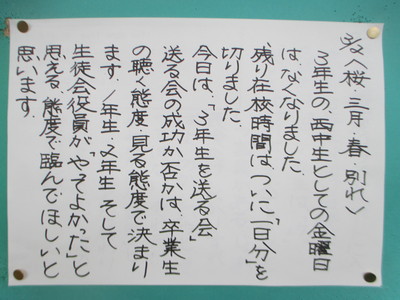 3/2〈桜・三月・春・別れ〉
3年生の、西中生としての金曜日
は、なくなりました。
残り在校時間は、ついに「一日分」を
切りました。
今日は、「3年生を送る会」
送る会の成功か否かは、卒業生
の聴く態度・見る態度で決まり
ます。1年生・2年生そして
生徒会役員が「やってよかった」と
思える態度で臨んでほしいと
思います。